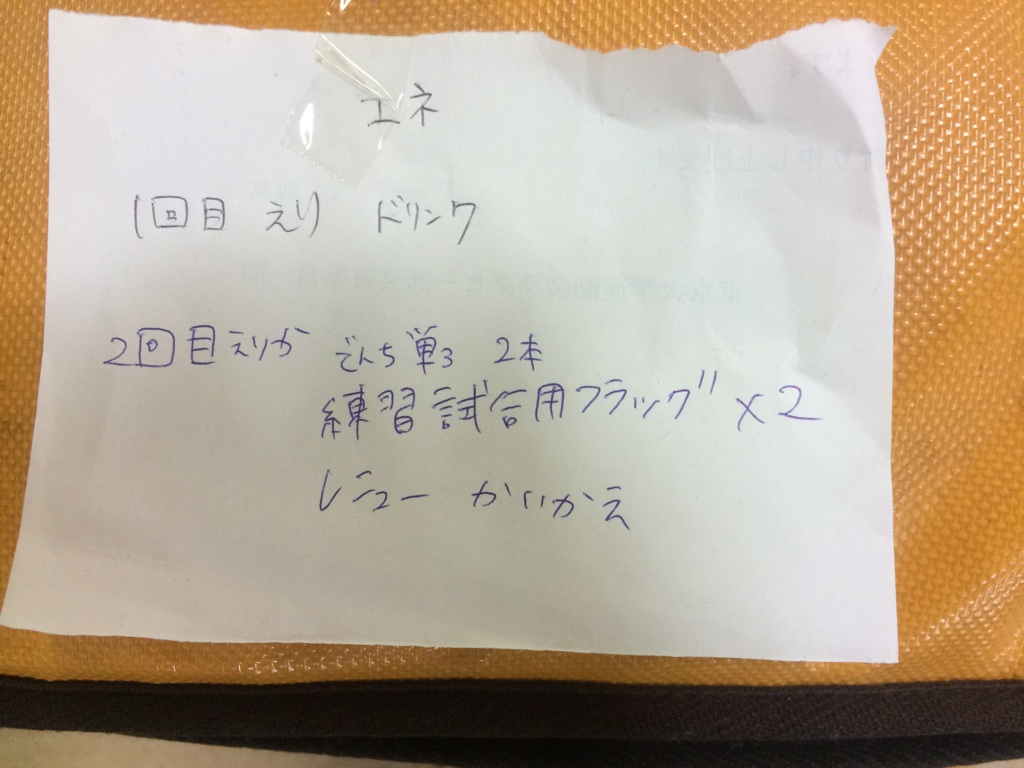 エネ
1回目 えり ドリンク
2回目 えりか でんち単3 2本
練習試合用フラッグ×2
レニュー かいかえ